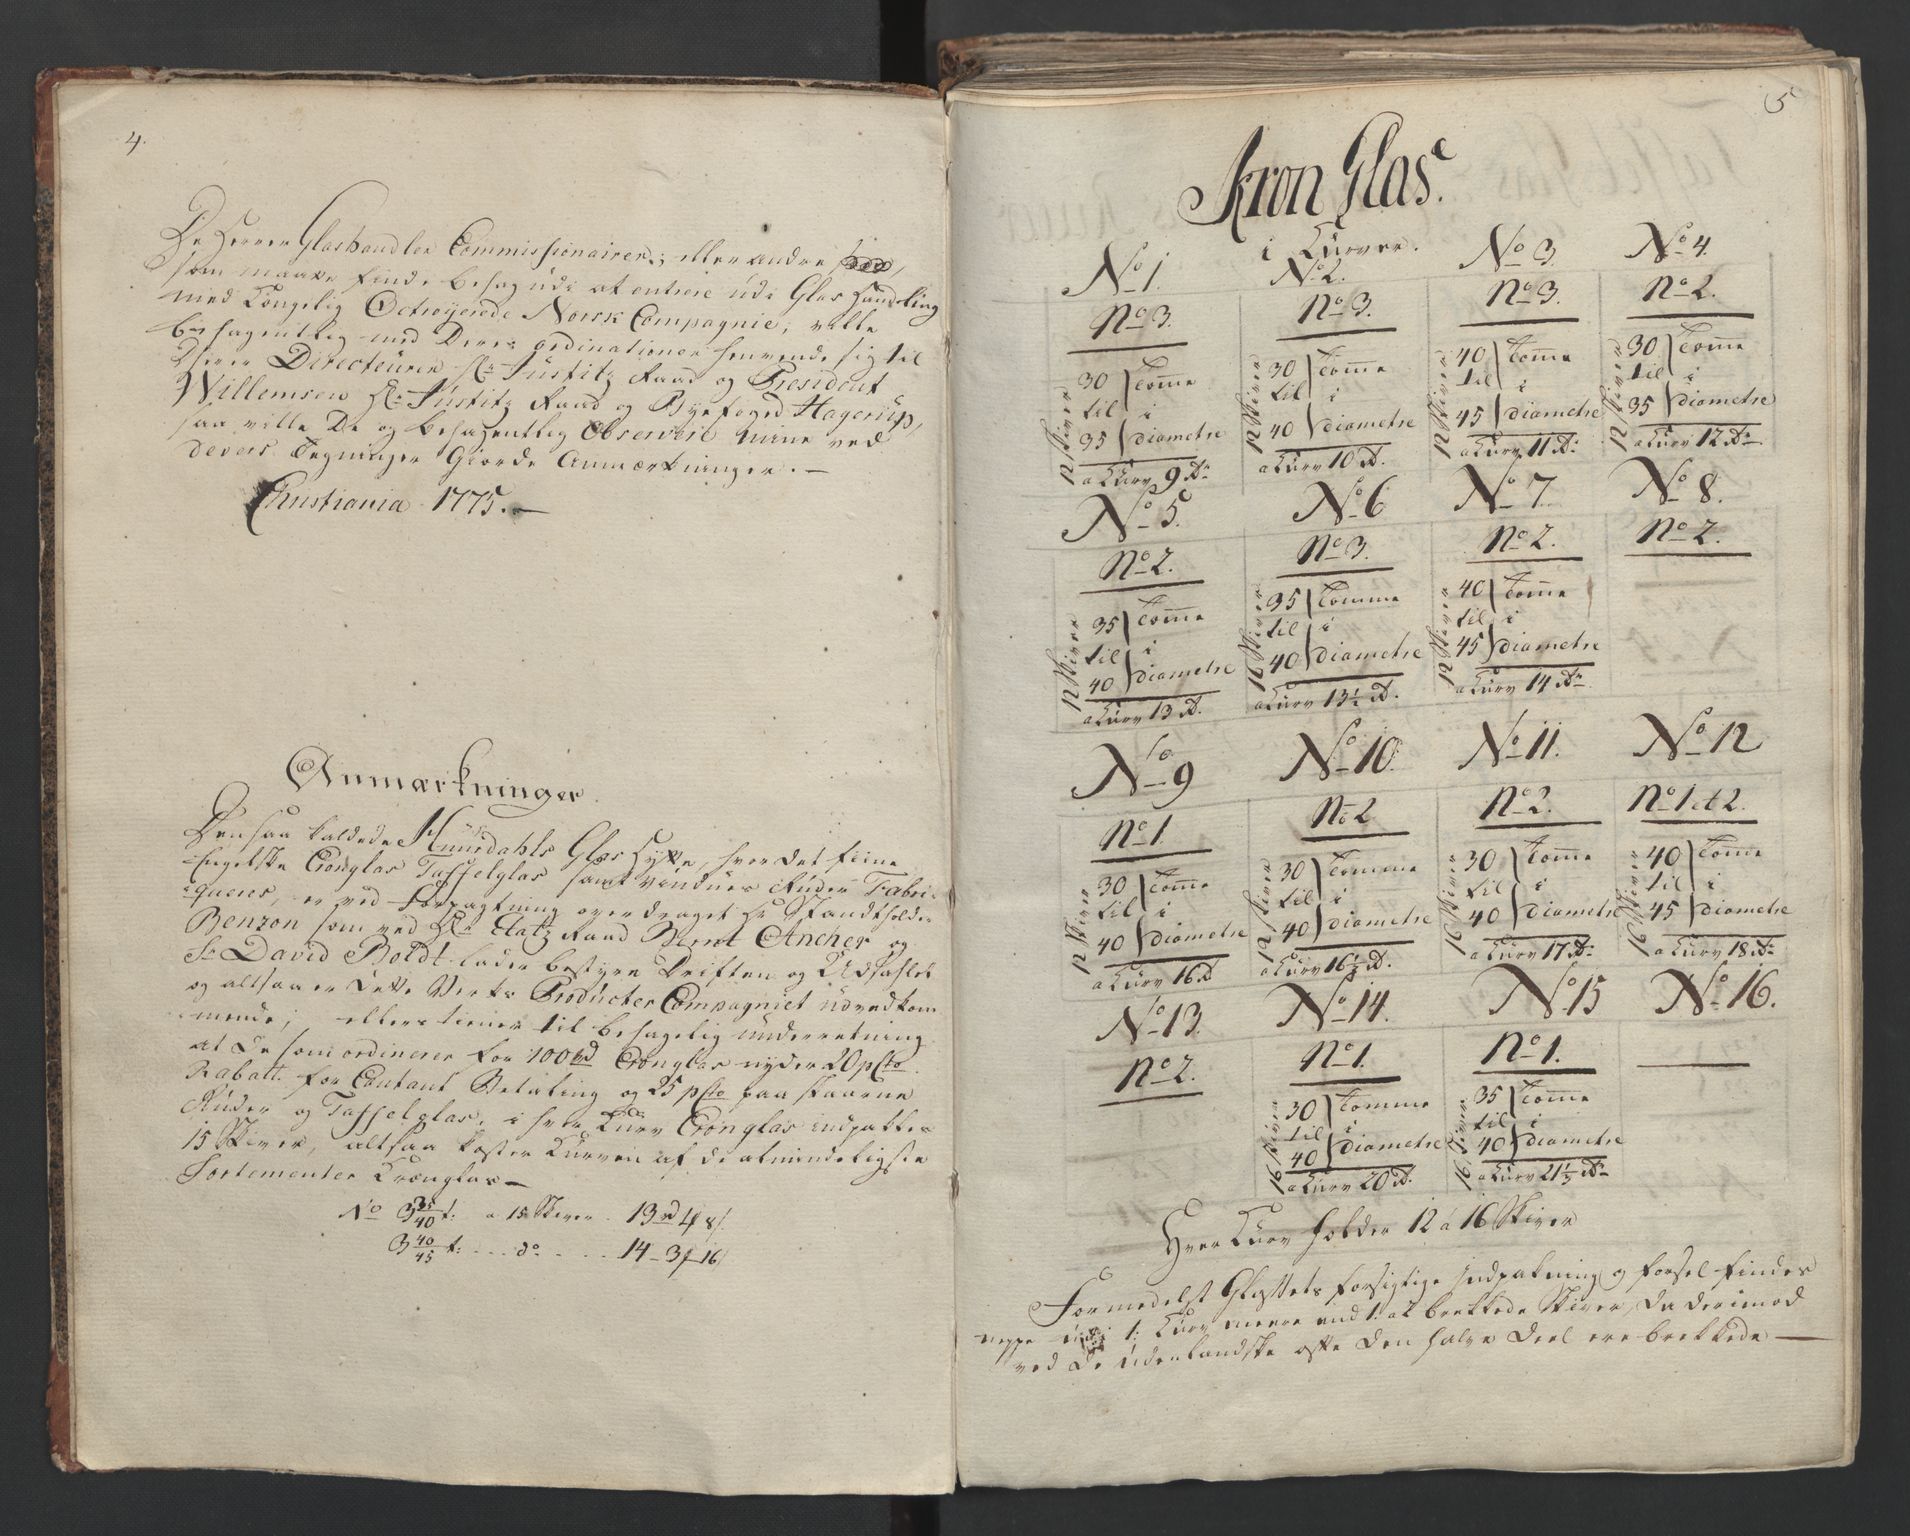 4.
De Herrer Glashandler Commissionairer; eller andre
som maatte finde behag udi at entrere udi Glas Handling
med Kongelig Octroyerede Norsk Compagnie; ville
behagentlig med Deres ordinationer henvende sig til
Directeurer Hr. Justitz Raad og President
Willemsen Hr. Justitz Raad og Byefoged Hagerup,
saa ville De og behagentlig Observere mine ved
devers Tegninger Giorde Anmærkninger.—
Christiania 1775.—
Anmærkninger.
Den saa kaldede Hurdahls Glas Hytte, hvor det fiine
Engelske Cronglas Taffelglas samt Vindues Ruder Fabri-
queres, er ved Forpagtning overdraget Hr Standtholder
Benzon som ved Hr. Etatz Raad Bernt Ancher og
Sr David Boldt lader bestyre Driften og Udsaflet
og altsaa er dette Verks Producter Compagniet uvedkom-
mende; ellers tiener til behagelig underretning
at De som ordinerer for 100 rd Cronglas nyder 20 pCto
Rabatt for Contant Betaling og 25 pCto paa skaarne
Ruder og Taffelglas, i hver Kurv Cronglas indpakkes
15 Skiver, altsaa koster Kurven af de almindeligste
Sortementer Cronglas—
No 3 35/40 t: a 15 Skiver. 13 rd 4 8/.
3 40/45 t: ... do .... 14 — 3 — 16/
5
Kron Glas.
i Kurver.
No 1. No 2. No 3. No 4.
No 3. No 3. No 3. No 2.
12 Skiver 30 til 35 Tomme i diametre
12 Skiver 30 til 40 Tomme i diametre
12 Skiver 40 til 45 Tomme i diametre
12 Skiver 30 til 35 Tomme i diametre
a Kurv 9 Dr. a Kurv 10 Dr. a Kurv 11 Dr. a Kurv 12 Dr.
No 5. No 6 No 7. No 8.
No 2. No 3. No 2. No 2.
12 Skiver 35 til 40 Tomme i diametre
16 Skiver 35 til 40 Tomme i diametre
12 Skiver 40 til 45 Tomme i diametre
a Kurv 13 Dr. a Kurv 13½ Dr. a Kurv 14 Dr.
No 9 No 10. No 11. No 12
No 1. No 2 No 2. No 1 et 2.
12 Skiver 30 til 40 Tomme i diametre
12 Skiver 30 til 40 Tomme i diametre
16 Skiver 30 til 40 Tomme i diametre
12 Skiver 40 til 45 Tomme i diametre
a Kurv 16 Dr. a Kurv 16½ Dr. a Kurv 17 Dr. a Kurv 18 Dr.
No 13. No 14. No 15 No 16.
No 2. No 1. No 1.
16 Skiver 30 til 40 Tomme i diametre
16 Skiver 35 til 40 Tomme i diametre
a Kurv 20 Dr. a Kurv 21⅓ Dr.
Hver Kurv holder 12 á 16 Skiver
Formedelst Glassets forsigtige Indpakning og forsel findes
neppe udi 1: Kurv meere end 1: at brekkede Skiver, da derimod
ved De udenlandske ofte den halve Deel ere brekkede —